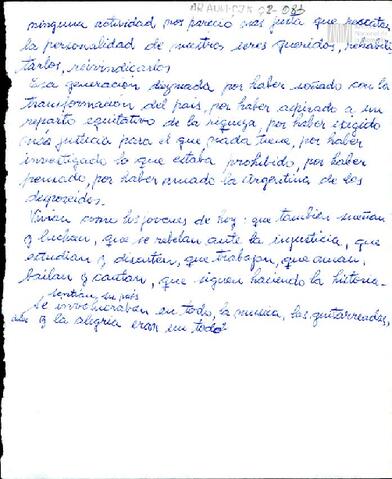 ninguna actividad nos pareció más justa que rescatar
la personalidad de nuestros seres queridos, rehabili
tarlos, reivindicarlos
Esa generación diezmada por haber soñado con la
transformación del país, por haber aspirado a un
reparto equitativo de la riqueza, por haber exigido
más justicia para el que nada tiene, por haber
investigado lo que estaba prohibido, por haber
pensado, por haber amado la Argentina de los
desposeídos.
Vivían como los jóvenes de hoy: que también sueñan
y luchan, que se rebelan ante la injusticia, que
estudian y discuten, que trabajan, que aman,
bailan y cantan, que siguen haciendo la historia.
sentían, su país
Se involucraban en todo, la música, las guitarreadas,
y la alegría eran un todo